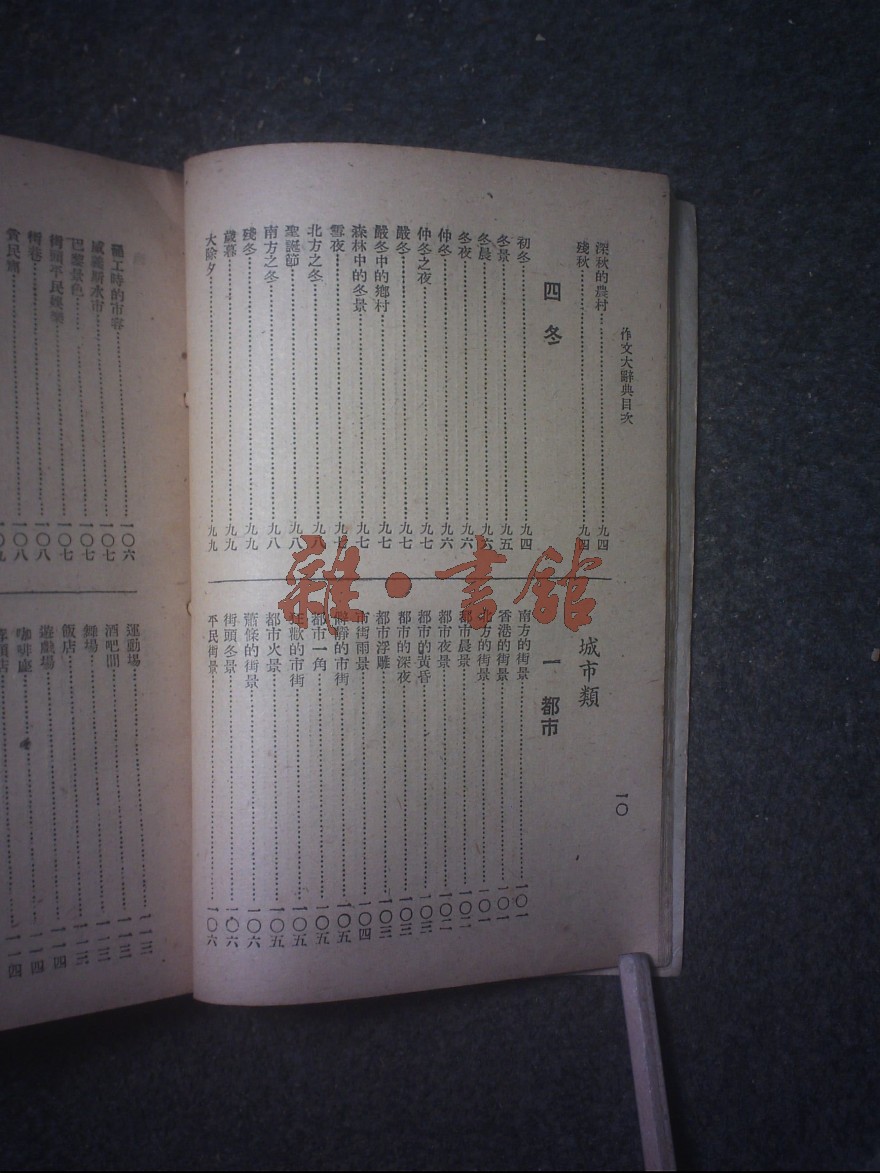 作文大辭典目次
一〇
深秋的農村 九四
殘秋 九四
四 冬
初冬 九四
冬景 九五
冬晨 九六
冬夜 九六
仲冬 九六
仲冬之夜 九七
嚴冬 九七
嚴冬中的鄉村 九七
森林中的冬景 九七
雪夜 九七
北方之冬 九八
聖誕節 九八
南方之冬 九八
殘冬 九九
歲暮 九九
大除夕 九九
城市類
一 都市
南方的街景 一〇一
香港的街景 一〇一
北方的街景 一〇一
都市晨景 一〇二
都市夜景 一〇二
都市的黃昏 一〇三
都市的深夜 一〇三
都市浮雕 一〇三
市街雨景 一〇四
的市街 一〇五
都市一角 一〇五
狂歡的市街 一〇五
都市火景 一〇五
蕭條的街景 一〇六
街頭冬景 一〇六
平民街景 一〇六
罷工時的市容 一〇六
威義斯水市 一〇七
巴黎景色 一〇七
街頭平民娛樂 一〇八
街巷 一〇八
貧民窟 一〇九
運動場 一一三
酒吧間 一一三
舞場 一一三
飯店 一一四
遊戲場 一一四
咖啡座 一一四
店 一一四
雜·書館